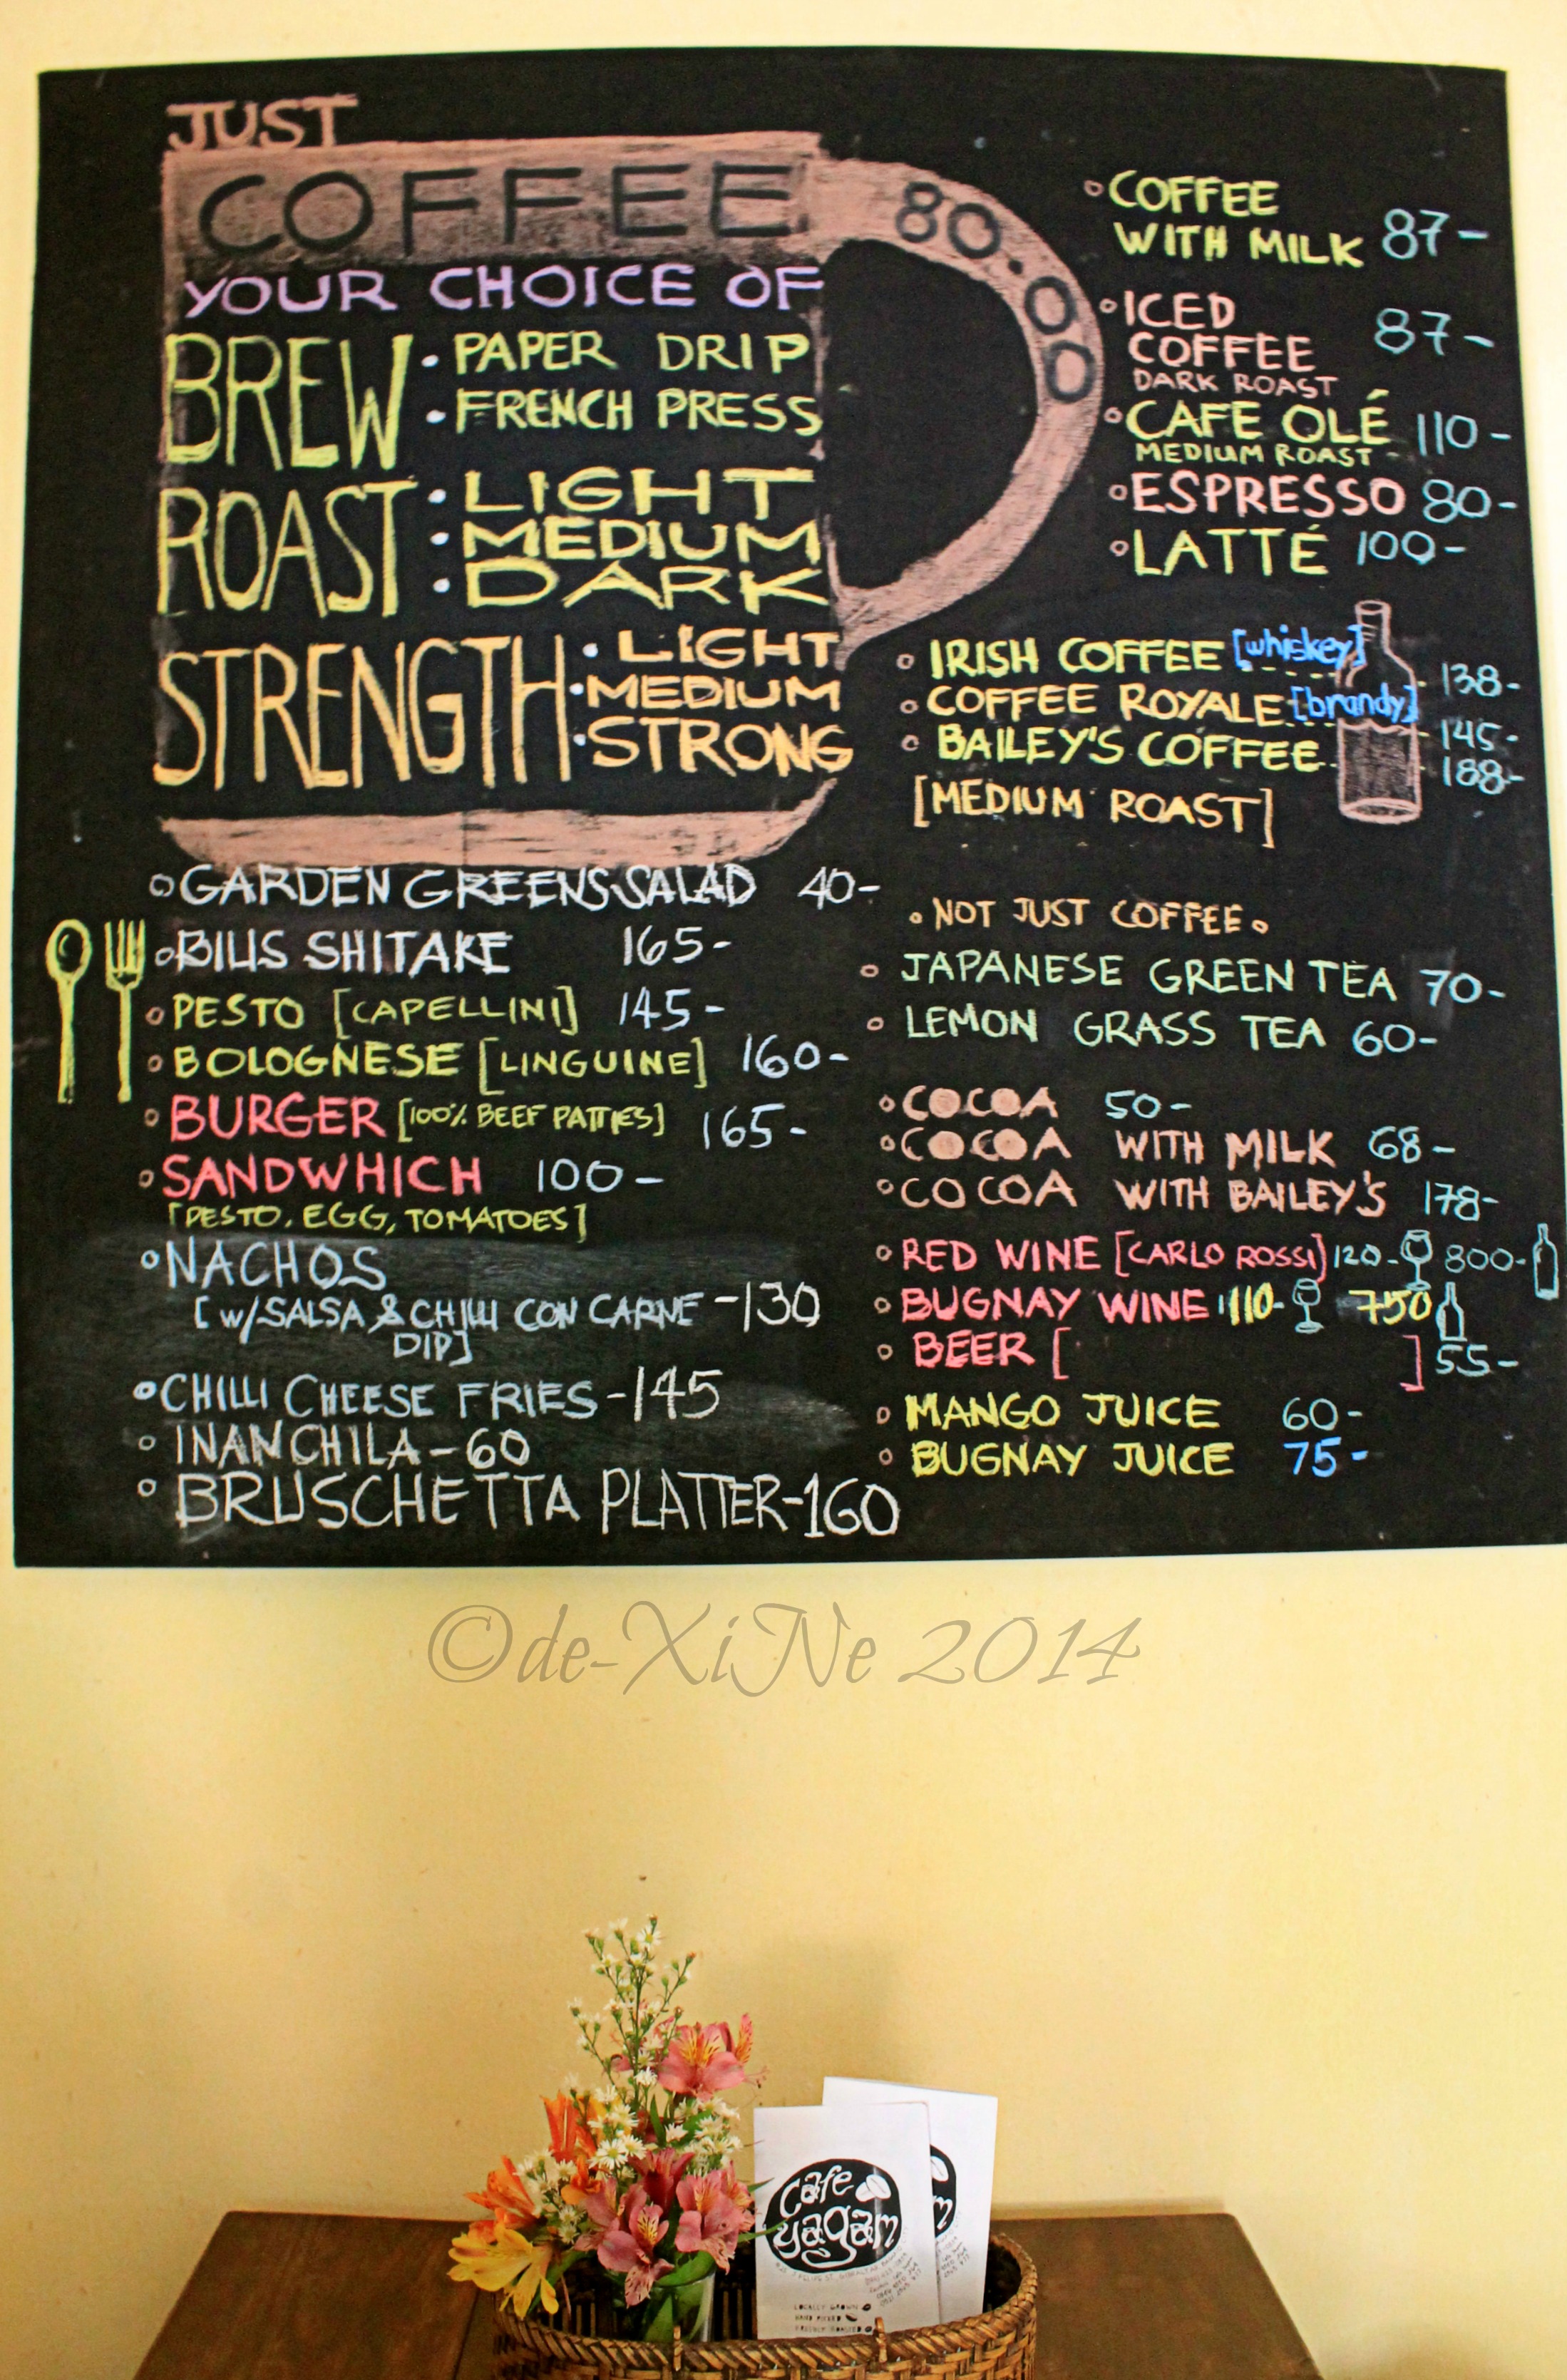 JUST
COFFEE 80.00
YOUR CHOICE OF
BREW • PAPER DRIP
• FRENCH PRESS
ROAST • LIGHT
• MEDIUM
• DARK
STRENGTH • LIGHT
• MEDIUM
• STRONG
COFFEE
WITH MILK 87-
ICED
COFFEE 87-
DARK ROAST
CAFE OLÉ 110-
MEDIUM ROAST
ESPRESSO 80-
LATTÉ 100-
IRISH COFFEE [whiskey] 138-
COFFEE ROYALE [brandy] 145-
BAILEY'S COFFEE 188-
[MEDIUM ROAST]
GARDEN GREENS SALAD 40-
BIUS SHITAKE 165-
PESTO [CAPELLINI] 145-
BOLOGNESE [LINGUINE] 160-
BURGER [100% BEEF PATTIES] 165-
SANDWHICH 100-
[PESTO, EGG, TOMATOES]
NACHOS
[W/SALSA & CHILLI CON CARNE -130
DIP]
CHILLI CHEESE FRIES -145
INANCHILA - 60
BRUSCHETTA PLATTER-160
• NOT JUST COFFEE •
JAPANESE GREEN TEA 70-
LEMON GRASS TEA 60-
COCOA 50-
COCOA WITH MILK 68-
COCOA WITH BAILEY'S 178-
RED WINE [CARLO ROSSI] 120- 800-
BUGNAY WINE 110- 750
BEER [ ] 55-
MANGO JUICE 60-
BUGNAY JUICE 75-
©de-XiNe 2014
cafe
yagam
LOCALLY GROWN
HAND PICKED
FRESHLY ROASTED